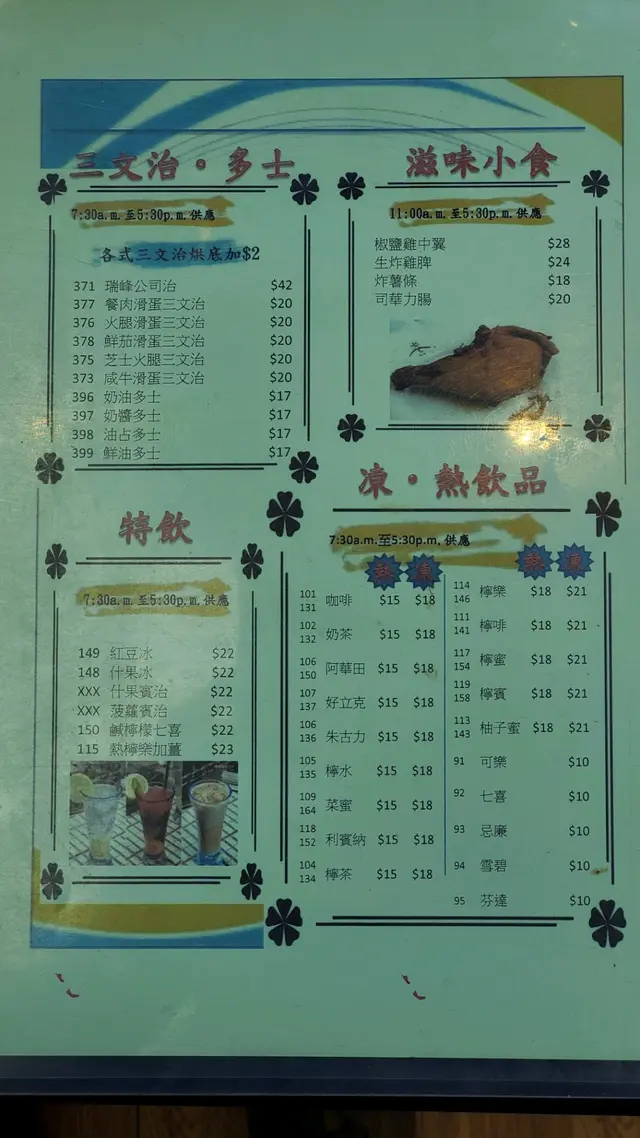 三文治•多士
7:30a.m.至5:30p.m.供應
各式三文治烘底加$2
371 瑞峰公司治 $42
377 餐肉滑蛋三文治 $20
376 火腿滑蛋三文治 $20
378 鮮茄滑蛋三文治 $20
375 芝士火腿三文治 $20
373 咸牛滑蛋三文治 $20
396 奶油多士 $17
397 奶醬多士 $17
398 油占多士 $17
399 鮮油多士 $17
滋味小食
11:00a.m.至5:30p.m.供應
椒鹽雞中翼 $28
生炸雞脾 $24
炸薯條 $18
司華力腸 $20
特飲
7:30a.m.至5:30p.m.供應
149 紅豆冰 $22
148 什果冰 $22
XXX 什果賓治 $22
XXX 菠蘿賓治 $22
150 鹹檸檬七喜 $22
115 熱檸樂加薑 $23
凍•熱飲品
7:30a.m.至5:30p.m.供應
熱 凍
101
131 咖啡 $15 $18
102
132 奶茶 $15 $18
106
150 阿華田 $15 $18
107
137 好立克 $15 $18
106
136 朱古力 $15 $18
105
135 檸水 $15 $18
109
164 菜蜜 $15 $18
118
152 利賓納 $15 $18
104
134 檸茶 $15 $18
熱 凍
114
146 檸樂 $18 $21
111
141 檸啡 $18 $21
117
154 檸蜜 $18 $21
119
158 檸賓 $18 $21
113
143 柚子蜜 $18 $21
91 可樂 $10
92 七喜 $10
93 忌廉 $10
94 雪碧 $10
95 芬達 $10